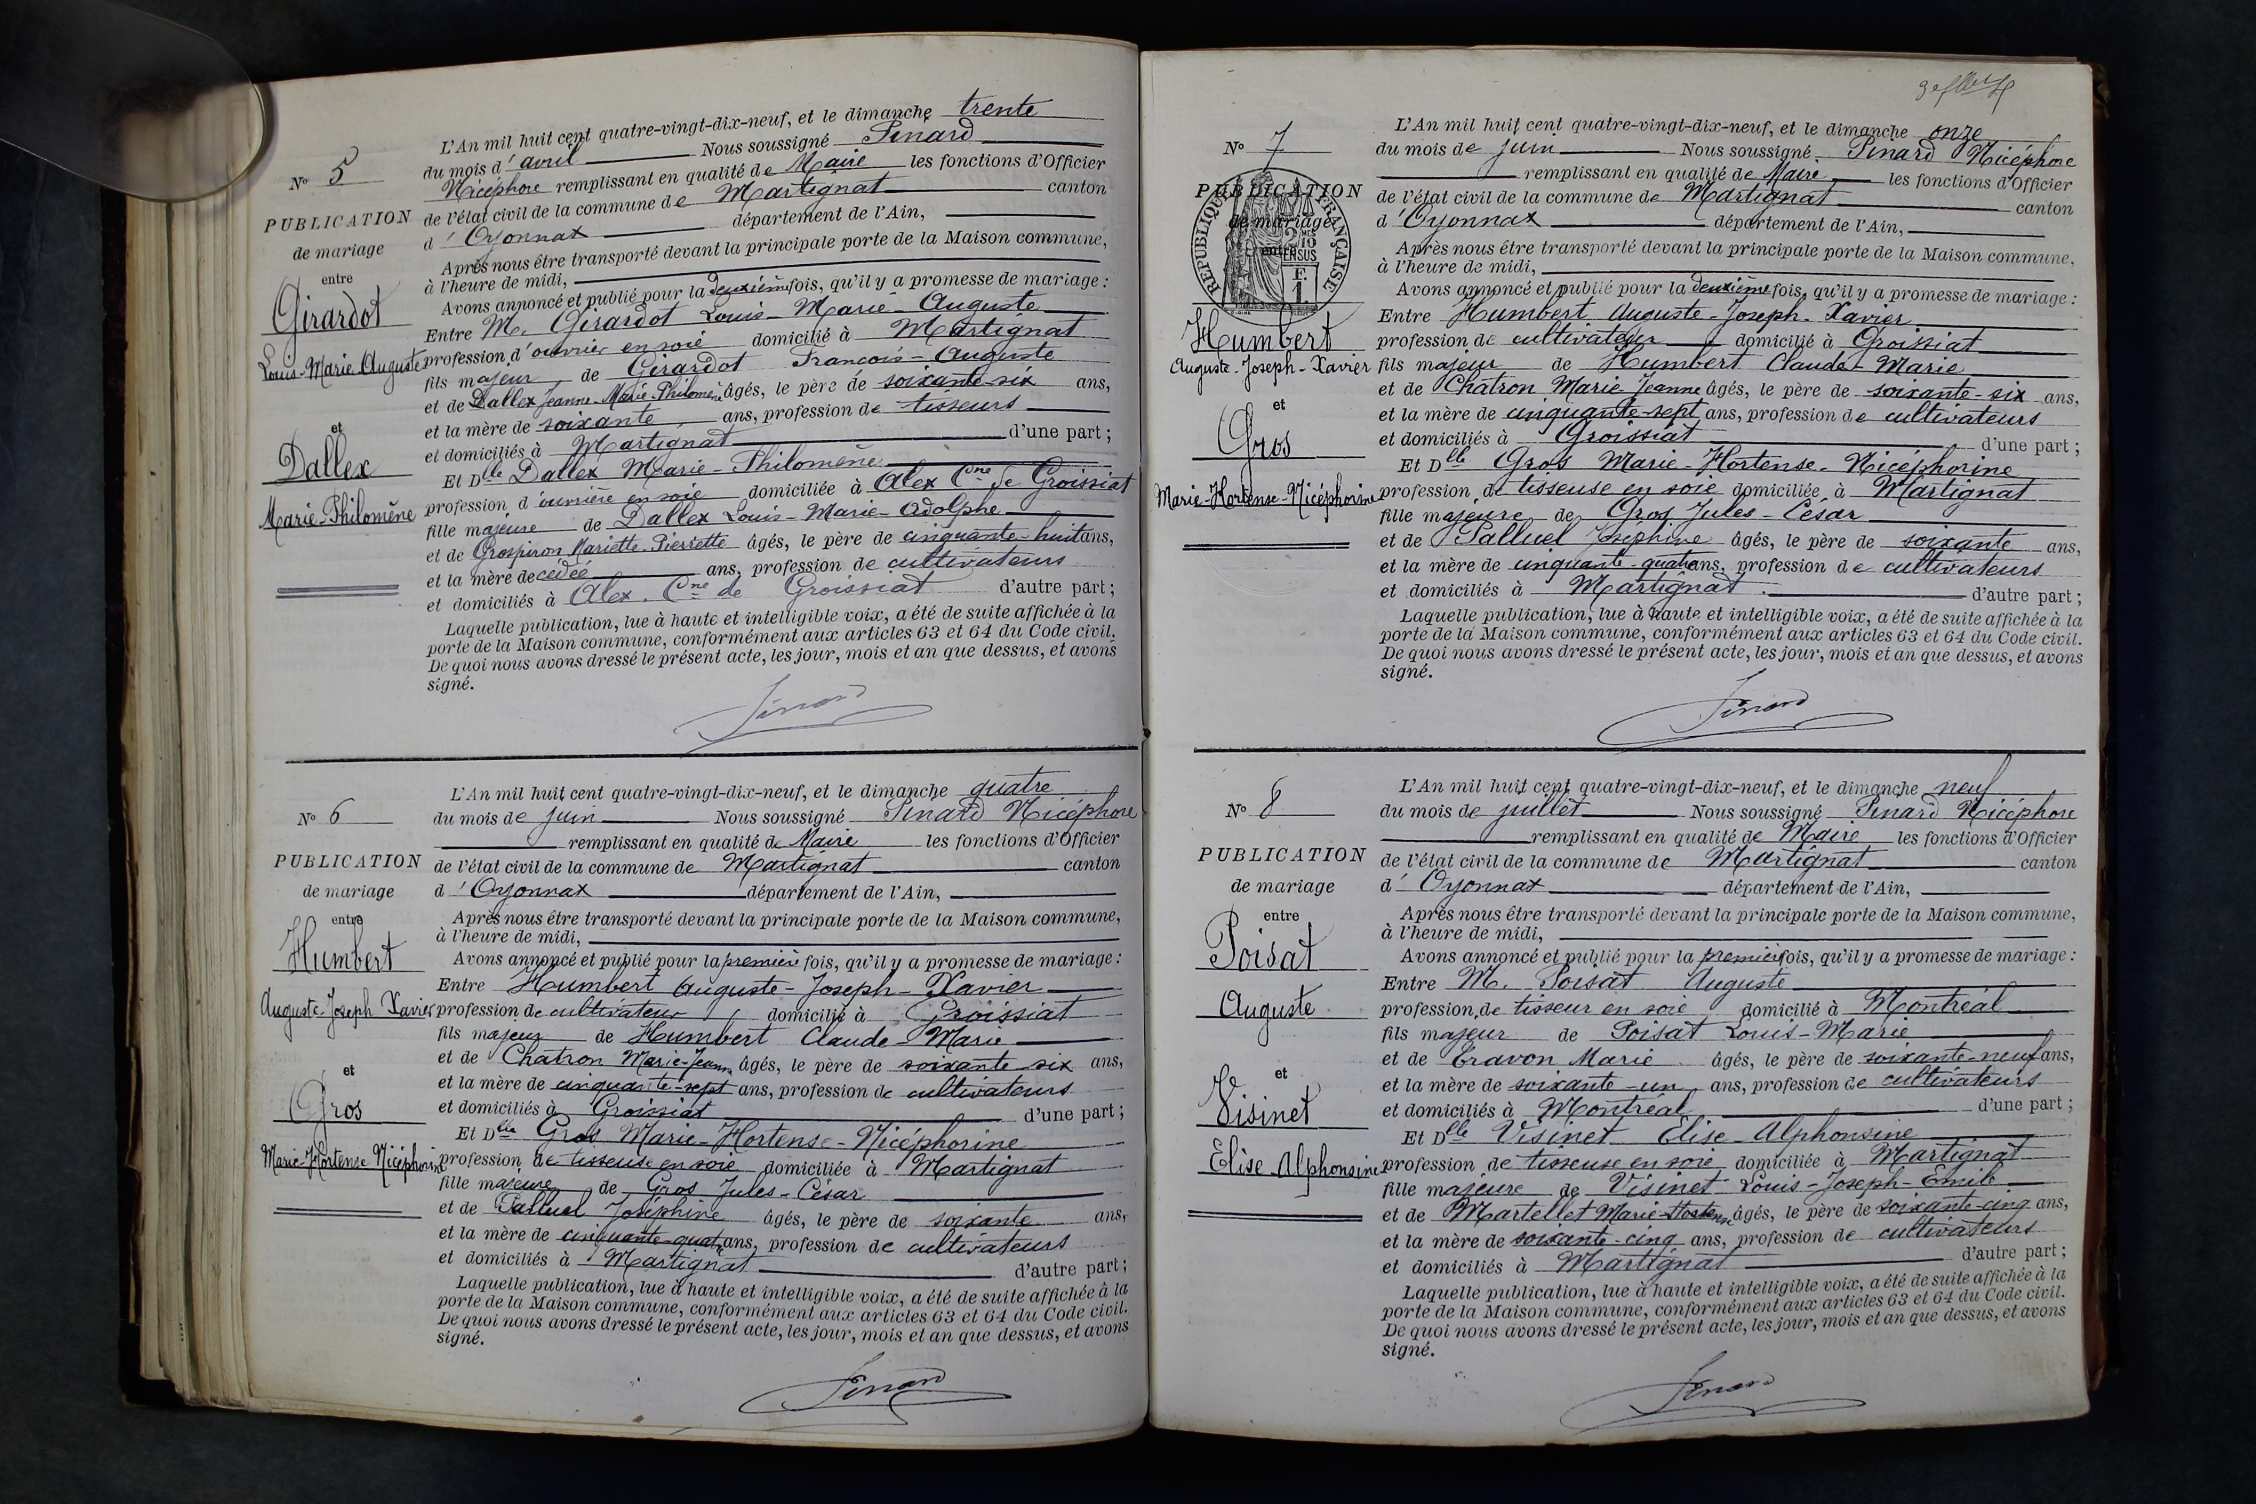 L'An mil huit cent quatre-vingt-dix-neuf, et le dimanche trente
du mois d'avril Nous soussigné Pinard
Nicéphore remplissant en qualité de Maire les fonctions d'Officier
de l'état civil de la commune de Martignat canton
d'Oyonnax département de l'Ain,
Après nous être transporté devant la principale porte de la Maison commune,
à l'heure de midi,
Avons annoncé et publié pour la deuxième fois, qu'il y a promesse de mariage :
Entre M. Girardot Louis-Marie-Auguste
profession d'ouvrier en soie domicilié à Martignat
fils majeur de Girardot François-Auguste
et de Dallex Jeanne-Marie-Philomène âgés, le père de soixante-six ans,
et la mère de soixante ans, profession de tisseurs
et domiciliés à Martignat d'une part ;
Et Dlle Dallex Marie-Philomène
profession d'ouvrière en soie domiciliée à Alex Cne de Groissiat
fille majeure de Dallex Louis-Marie-Adolphe
et de Grospiron Mariette-Pierrette âgés, le père de cinquante-huit ans,
et la mère decédéé ans, profession de cultivateurs
et domiciliés à Alex. Cne de Groissiat d'autre part ;
Laquelle publication, lue à haute et intelligible voix, a été de suite affichée à la
porte de la Maison commune, conformément aux articles 63 et 64 du Code civil.
De quoi nous avons dressé le présent acte, les jour, mois et an que dessus, et avons
signé.
Pinard
No 5
PUBLICATION
de mariage
entre
Girardot
Louis-Marie Auguste
et
Dallex
Marie-Philomène
L'An mil huit cent quatre-vingt-dix-neuf, et le dimanche quatre
du mois de juin Nous soussigné Pinard Nicéphore
remplissant en qualité de Maire les fonctions d'Officier
de l'état civil de la commune de Martignat canton
d'Oyonnax département de l'Ain,
Après nous être transporté devant la principale porte de la Maison commune,
à l'heure de midi,
Avons annoncé et publié pour la première fois, qu'il y a promesse de mariage :
Entre Humbert Auguste-Joseph-Xavier
profession de cultivateur domicilié à Groissiat
fils majeur de Humbert Claude-Marie
et de Chatron Marie-Jeanne âgés, le père de soixante six ans,
et la mère de cinquante-sept ans, profession de cultivateurs
et domiciliés à Groissiat d'une part ;
Et Dlle Gros Marie-Hortense-Nicéphorine
profession de tisseuse en soie domiciliée à Martignat
fille majeure de Gros Jules-César
et de Palluel Joséphine âgés, le père de soixante ans,
et la mère de cinquante-quatre ans, profession de cultivateurs
et domiciliés à Martignat d'autre part ;
Laquelle publication, lue à haute et intelligible voix, a été de suite affichée à la
porte de la Maison commune, conformément aux articles 63 et 64 du Code civil.
De quoi nous avons dressé le présent acte, les jour, mois et an que dessus, et avons
signé.
Pinard
No 6
PUBLICATION
de mariage
entre
Humbert
Auguste-Joseph Xavier
et
Gros
Marie-Hortense Nicéphorine
L'An mil huit cent quatre-vingt-dix-neuf, et le dimanche onze
du mois de juin Nous soussigné Pinard Nicéphore
remplissant en qualité de Maire les fonctions d'Officier
de l'état civil de la commune de Martignat canton
d'Oyonnax département de l'Ain,
Après nous être transporté devant la principale porte de la Maison commune,
à l'heure de midi,
Avons annoncé et publié pour la deuxième fois, qu'il y a promesse de mariage :
Entre Humbert Auguste-Joseph-Xavier
profession de cultivateur domicilié à Groissiat
fils majeur de Humbert Claude-Marie
et de Chatron Marie Jeanne âgés, le père de soixante-six ans,
et la mère de cinquante-sept ans, profession de cultivateurs
et domiciliés à Groissiat d'une part ;
Et Dlle Gros Marie-Hortense-Nicéphorine
profession de tisseuse en soie domiciliée à Martignat
fille majeure de Gros Jules-César
et de Palluel Joséphine âgés, le père de soixante ans,
et la mère de cinquante-quatre ans, profession de cultivateurs
et domiciliés à Martignat d'autre part ;
Laquelle publication, lue à haute et intelligible voix, a été de suite affichée à la
porte de la Maison commune, conformément aux articles 63 et 64 du Code civil.
De quoi nous avons dressé le présent acte, les jour, mois et an que dessus, et avons
signé.
Pinard
No 7
PUBLICATION
de mariage
entre
RÉPUBLIQUE FRANÇAISE
2 MES
10
EN SUS
F
1
Humbert
Auguste-Joseph-Xavier
et
Gros
Marie-Hortense-Nicéphorine
L'An mil huit cent quatre-vingt-dix-neuf, et le dimanche neuf
du mois de juillet Nous soussigné Pinard Nicéphore
remplissant en qualité de Maire les fonctions d'Officier
de l'état civil de la commune de Martignat canton
d'Oyonnax département de l'Ain,
Après nous être transporté devant la principale porte de la Maison commune,
à l'heure de midi,
Avons annoncé et publié pour la première fois, qu'il y a promesse de mariage :
Entre M. Poisat Auguste
profession de tisseur en soie domicilié à Montréal
fils majeur de Poisat Louis-Marie
et de Cravon Marie âgés, le père de soixante-neuf ans,
et la mère de soixante-un ans, profession de cultivateurs
et domiciliés à Montréal d'une part ;
Et Dlle Visinet Elise-Alphonsine
profession de tisseuse en soie domiciliée à Martignat
fille majeure de Visinet Louis-Joseph-Emile
et de Martellet Marie-Hortense âgés, le père de soixante-cinq ans,
et la mère de soixante-cinq ans, profession de cultivateurs
et domiciliés à Martignat d'autre part ;
Laquelle publication, lue à haute et intelligible voix, a été de suite affichée à la
porte de la Maison commune, conformément aux articles 63 et 64 du Code civil.
De quoi nous avons dressé le présent acte, les jour, mois et an que dessus, et avons
signé.
Pinard
No 8
PUBLICATION
de mariage
entre
Poisat
Auguste
et
Visinet
Elise-Alphonsine